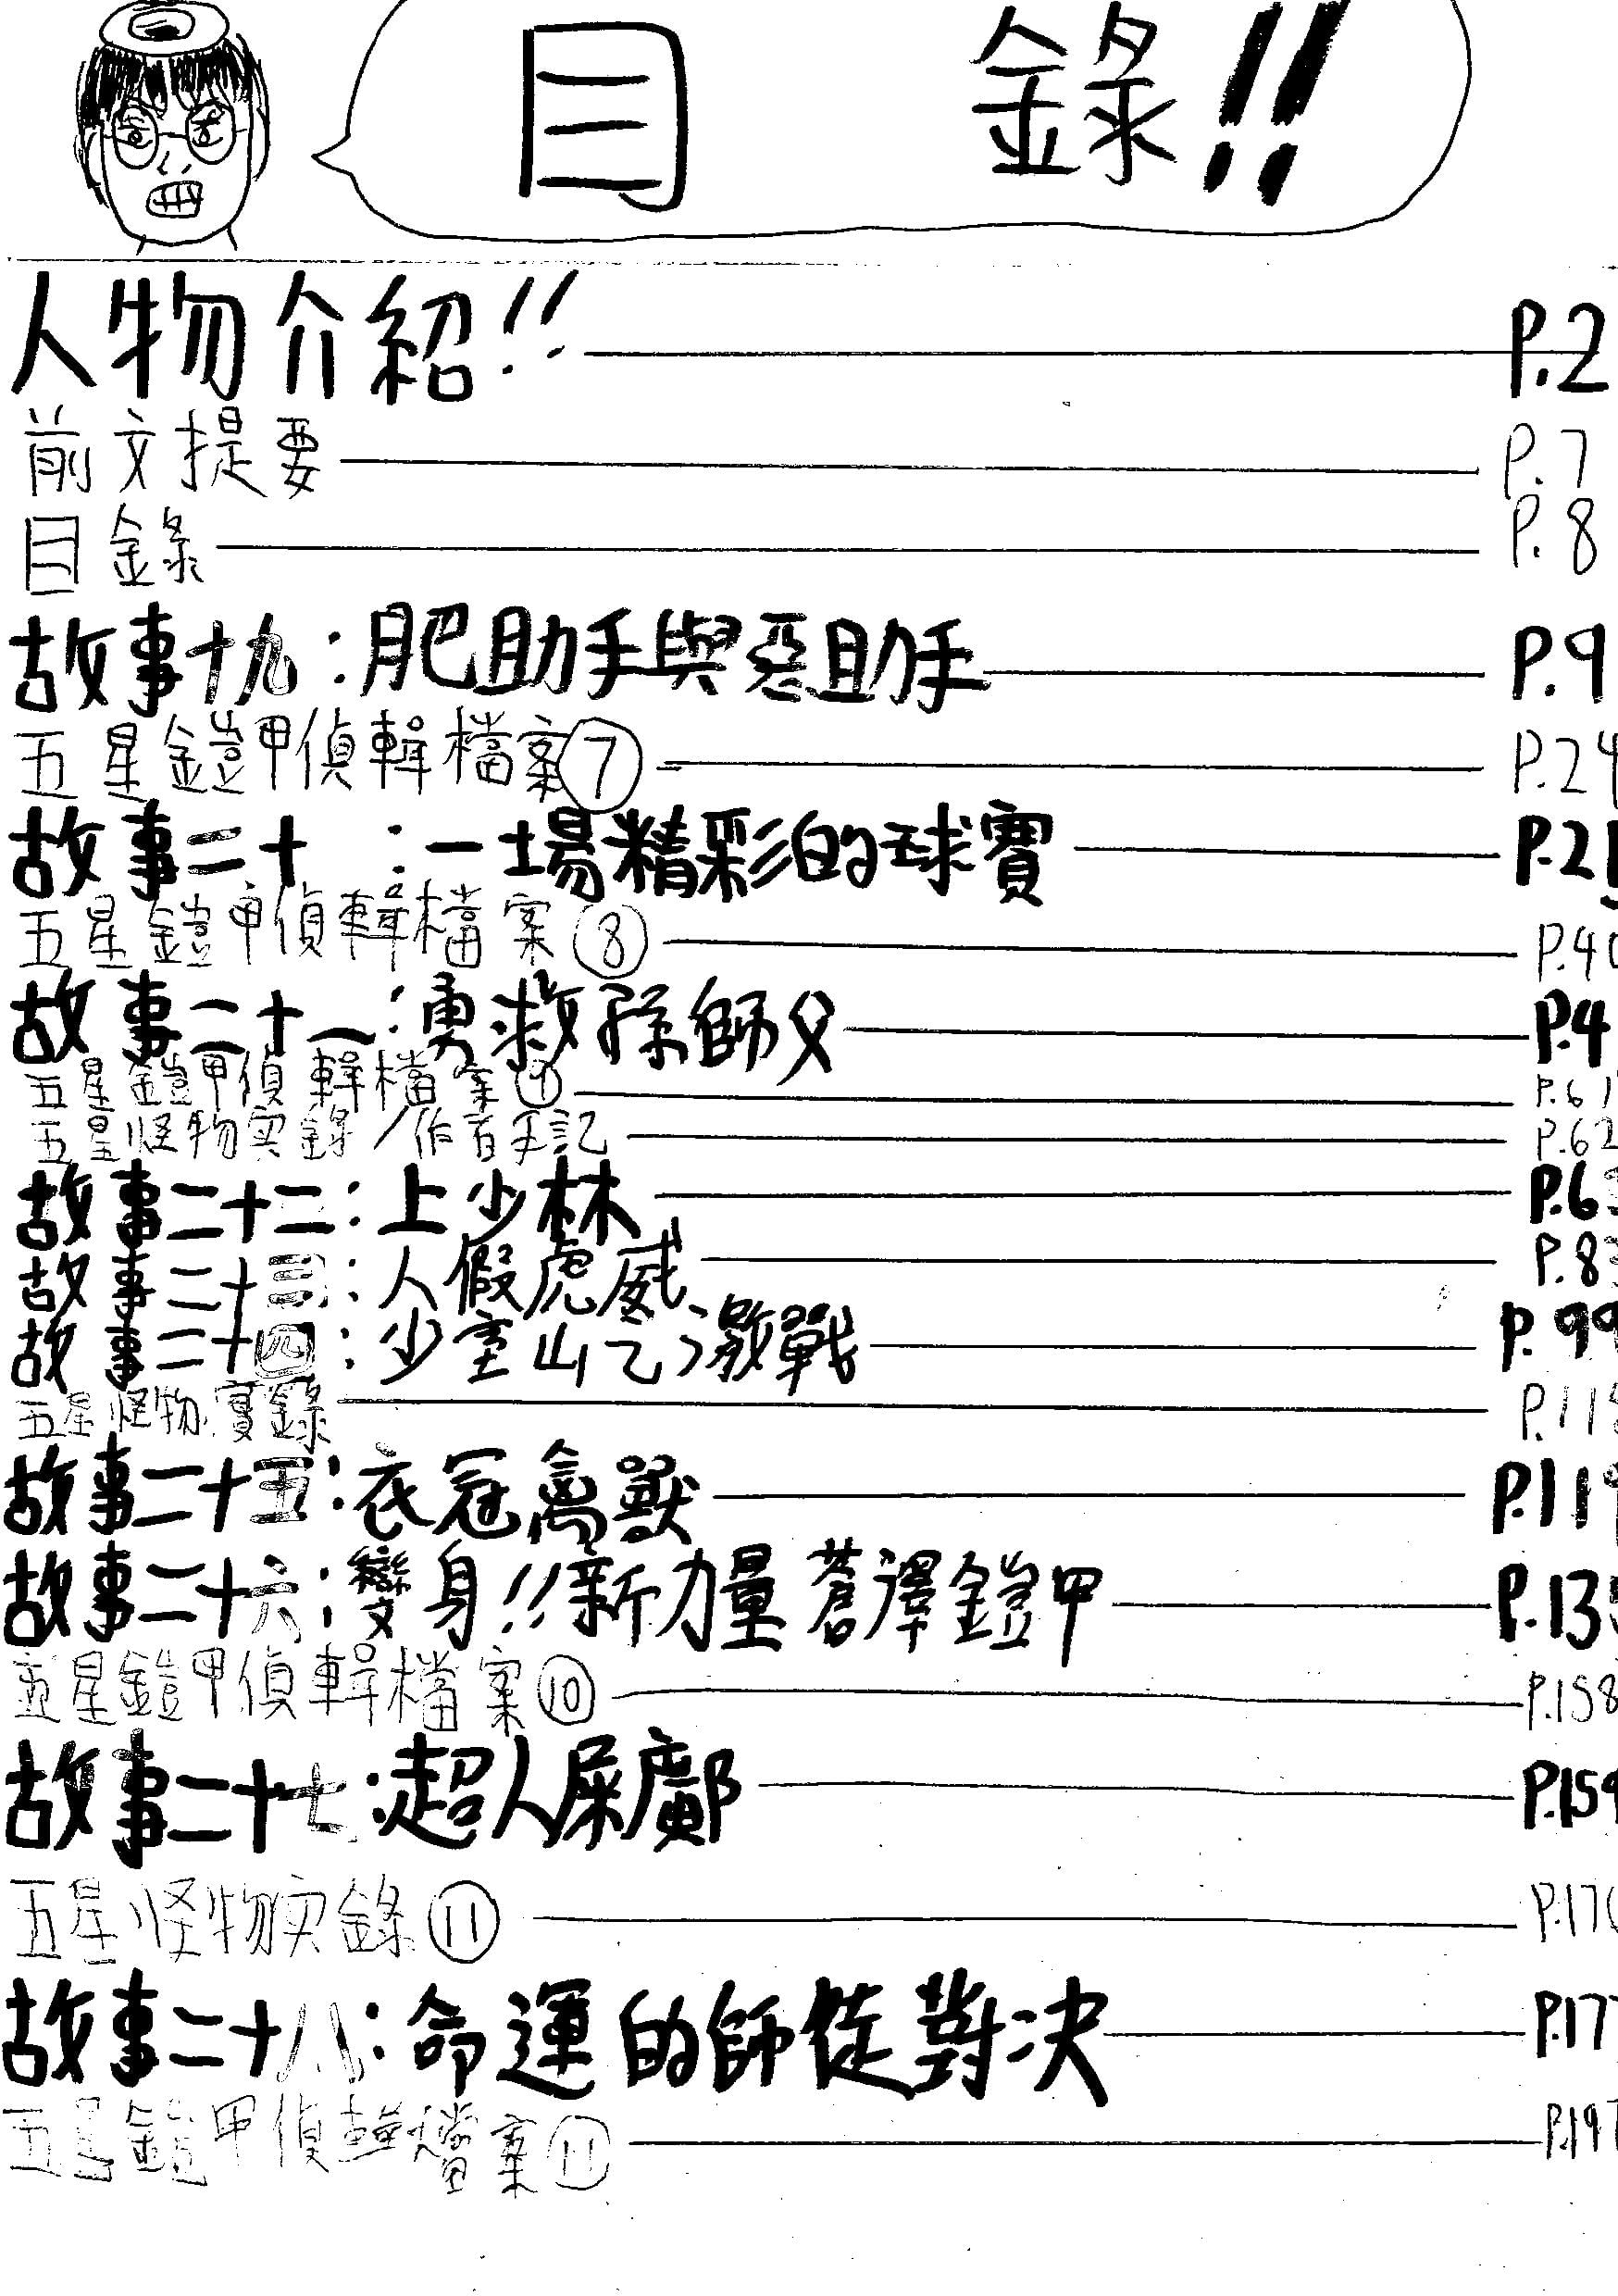 目錄!!
人物介紹!! P.2
前文提要 P.7
目錄 P.8
故事十九:肥助手與惡助手 P.9
五星鎧甲偵輯檔案⑦ P.24
故事二十:一場精彩的球賽 P.25
五星鎧甲偵輯檔案⑧ P.40
故事二十一:勇救孫師父 P.4
五星鎧甲偵輯檔案⑨ P.61
五星怪物实錄/作者手記 P.62
故事二十二:上少林 P.63
故事二十三:人假虎威 P.83
故事二十四:少室山之激戰 P.99
五星怪物實錄 P.11
故事二十五:衣冠禽獸 P.119
故事二十六:變身!!新力量蒼澤鎧甲 P.135
五星鎧甲偵輯檔案⑩ P.158
故事二十七:超人屎 P.159
五星怪物实錄⑪ P.17
故事二十八:命運的師徒對決 P.17
五星鎧甲偵輯檔案⑪ P.197